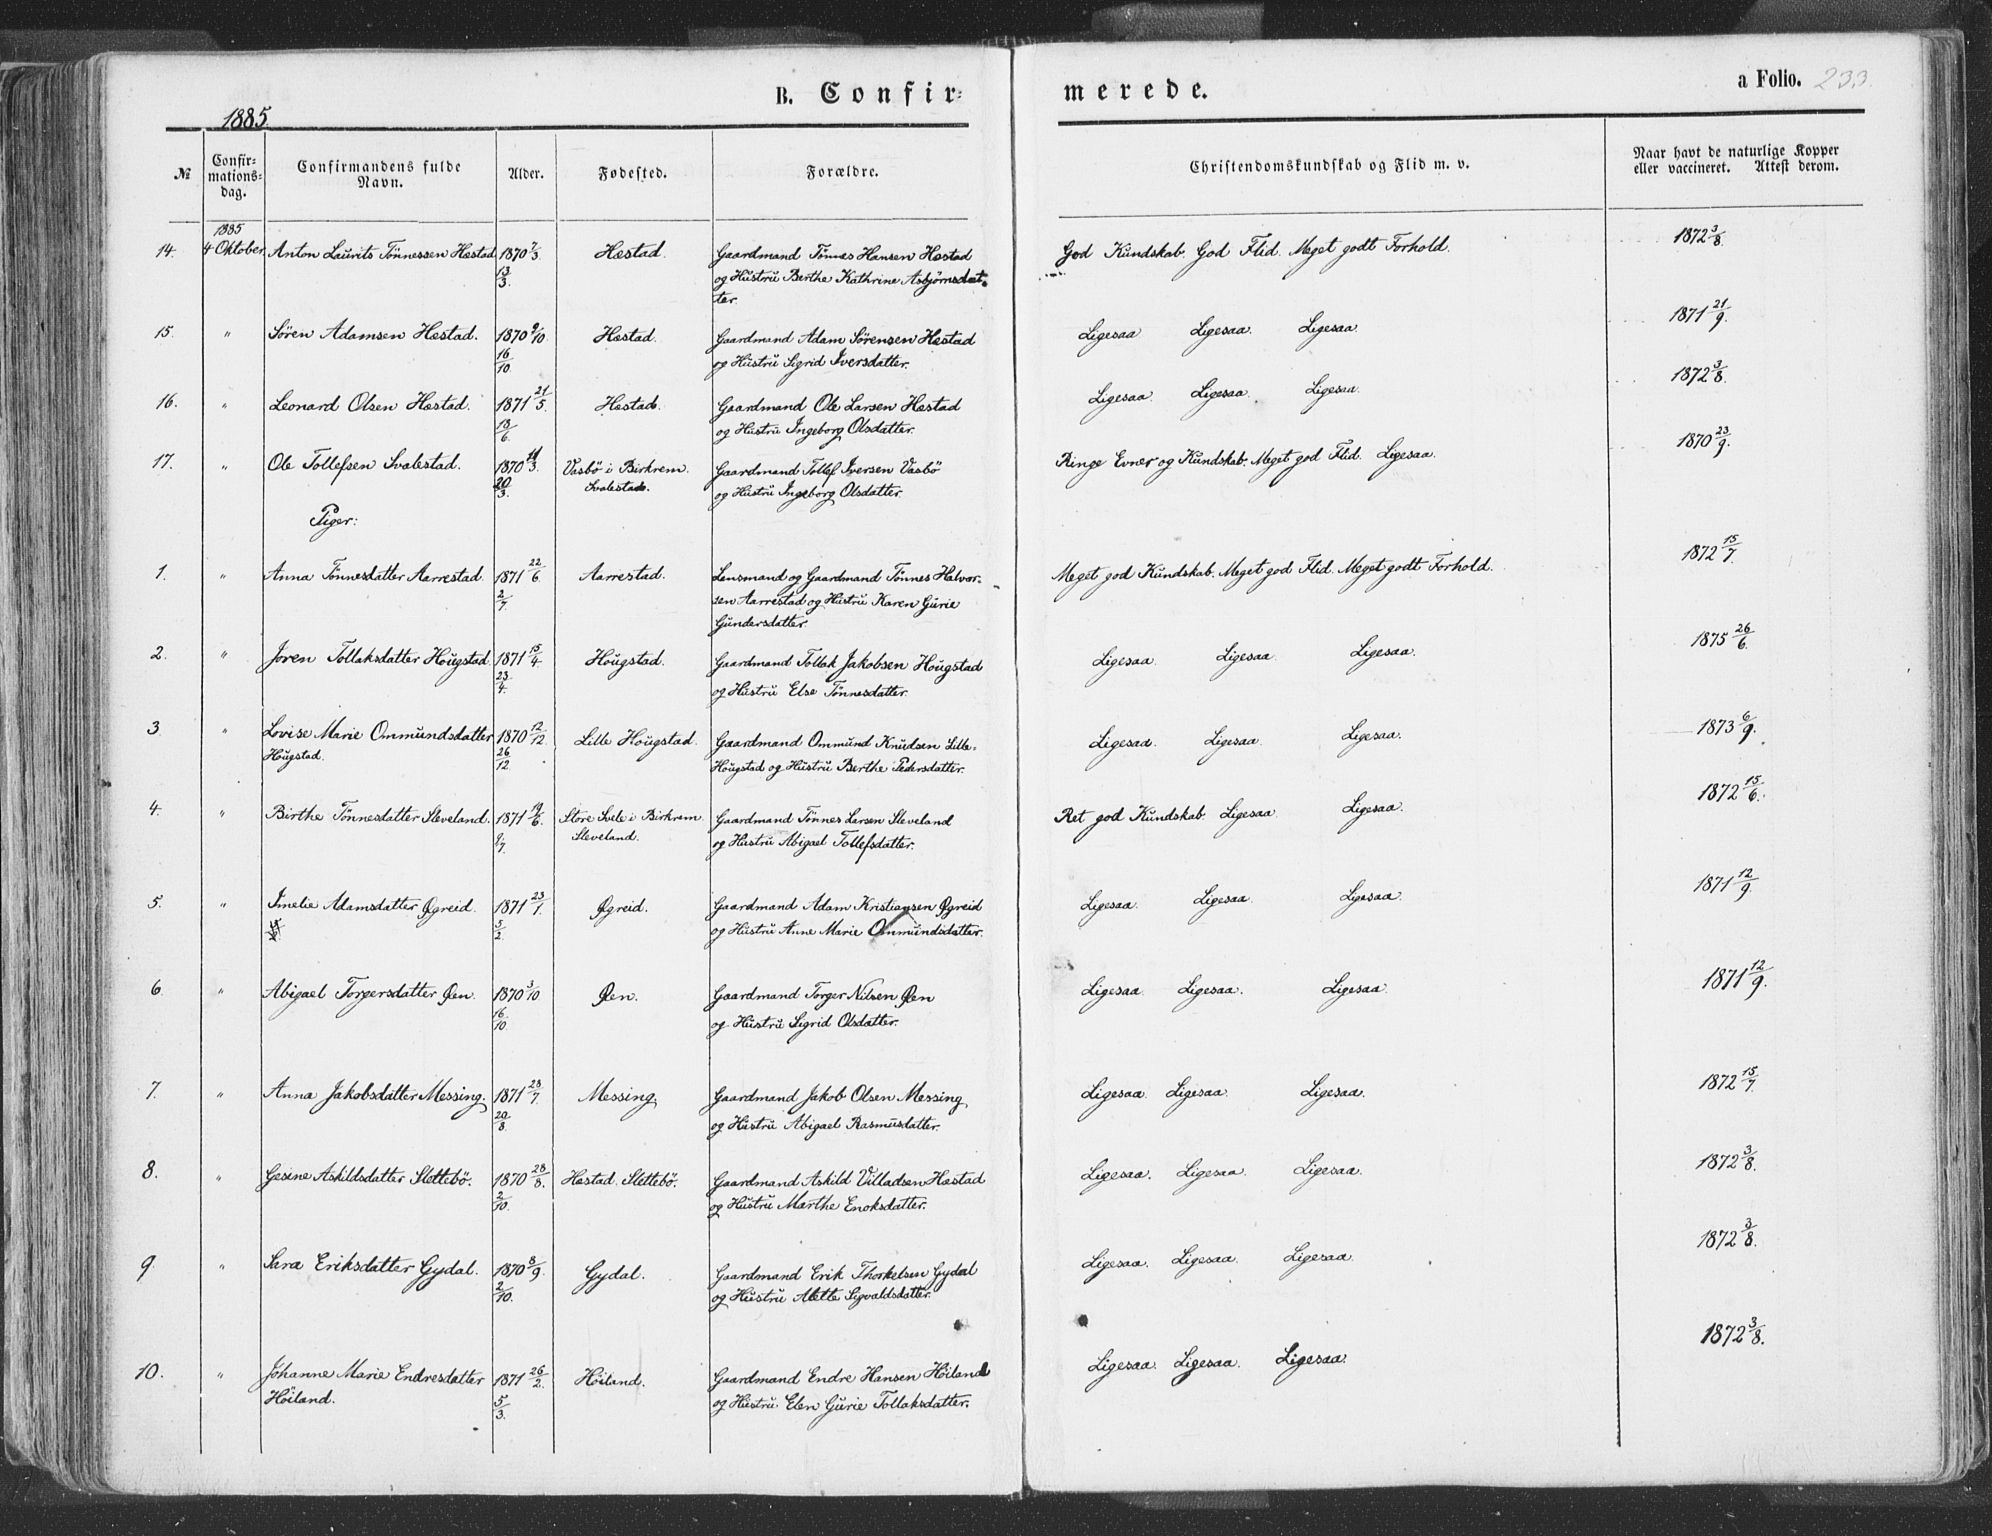 B. Confir=
merede.
a Folio. 233.
1885.
№
Confir=
mations=
dag.
Confirmandens fulde
Navn.
Alder.
Fødested.
Forældre.
Christendomskundskab og Flid m. v.
Naar havt de naturlige Kopper
eller vaccineret. Attest derom.
1885
14. 4 Oktober. Anton Laurits Tönnessen Hæstad 1870 7/3. Hæstad. Gaardmand Tönnes Hansen Hæstad God Kundskab. God Flid. Meget godt Forhold. 1872 3/8.
13/3. og Hustru Berthe Kathrine Asbjörnsdat-
ter.
15. " Sören Adamsen Hæstad. 1870 9/10. Hæstad. Gaardmand Adam Sörensen Hæstad Ligesaa Ligesaa. Ligesaa. 1871 21/9.
16/10. og Hustru Sigrid Iversdatter.
16. " Leonard Olsen Hæstad. 1871 21/5. Hæstad. Gaardmand Ole Larsen Hæstad Ligesaa. Ligesaa. Ligesaa. 1872 3/8.
18/6. og Hustru Ingeborg Olsdatter.
17. " Ole Tollefsen Svalestad. 1870 /3. Vasbö i Birkrem. Gaardmand Tollef Iversen Vasbö Ringe Evner og Kundskab. Meget god Flid. Ligesaa. 1870 23/9.
20/3. Svalestad. og Hustru Ingeborg Olsdatter.
Piger:
1. " Anna Tönnesdatter Aarrestad. 1871 22/6. Aarrestad. Lensmand og Gaardmand Tönnes Halvor- Meget god Kundskab. Meget god Flid. Meget godt Forhold. 1872 15/7.
2/7. sen Aarrestad og Hustru Karen Gurie
Gundersdatter.
2. " Joren Tollaksdatter Hougstad. 1871 15/4. Hougstad. Gaardmand Tollak Jakobsen Hougstad Ligesaa. Ligesaa. Ligesaa. 1875 26/6.
23/4. og Hustru Else Tönnesdatter.
3. " Lovise Marie Ommundsdatter 1870 12/12. Lille Hougstad. Gaardmand Ommund Knudsen Lille- Ligesaa. Ligesaa. Ligesaa. 1873 6/9.
Hougstad. 26/12. Hougstad og Hustru Berthe Pedersdatter.
4. " Birthe Tönnesdatter Sleveland. 1871 19/6. Store Svele i Birkrem. Gaardmand Tönnes Larsen Sleveland Ret god Kundskab. Ligesaa. Ligesaa. 1872 15/6.
9/7. Sleveland. og Hustru Abigael Tollefsdatter.
5. " Imelie Adamsdatter Øgreid. 1871 23/1. Øgreid. Gaardmand Adam Kristiansen Øgreid Ligesaa. Ligesaa. Ligesaa. 1871 12/9.
5/2. og Hustru Anne Marie Ommundsdatter.
6. " Abigael Torgersdatter Øen. 1870 3/10 Øen. Gaardmand Torger Nilsen Øen Ligesaa. Ligesaa. Ligesaa. 1871 12/9.
16/10. og Hustru Sigrid Olsdatter.
7. " Anna Jakobsdatter Messing. 1871 28/7. Messing. Gaardmand Jakob Olsen Messing Ligesaa. Ligesaa. Ligesaa. 1872 15/7.
20/8. og Hustru Abigael Rasmusdatter.
8. " Gesine Askildsdatter Slettebö. 1870 28/8. Hæstad. Slettebö. Gaardmand Askild Villadsen Hæstad Ligesaa. Ligesaa. Ligesaa. 1872 3/8.
2/10. og Hustru Marthe Enoksdatter.
9. " Sara Eriksdatter Gydal. 1870 8/9. Gydal. Gaardmand Erik Thorkelsen Gydal Ligesaa. Ligesaa. Ligesaa. 1872 3/8.
2/10. og Hustru Alette Sigvaldsdatter.
10. " Johanne Marie Endresdatter 1871 26/2. Höiland. Gaardmand Endre Hansen Höiland Ligesaa. Ligesaa. Ligesaa. 1872 3/8.
Höiland. 5/3. og Hustru Elen Gurie Tollaksdatter.